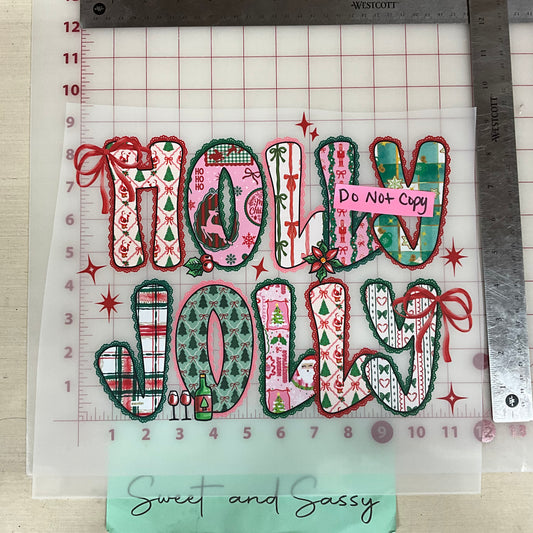 WESTCOTT
WESTCOTT
HOLLY
HO
HO
HO
Do Not Copy
JOLLY
9
8
7
6
5
4
3
2
1
1 2 3 4 5 6 7 8 9 10 11 12 13
Sweet and Sassy